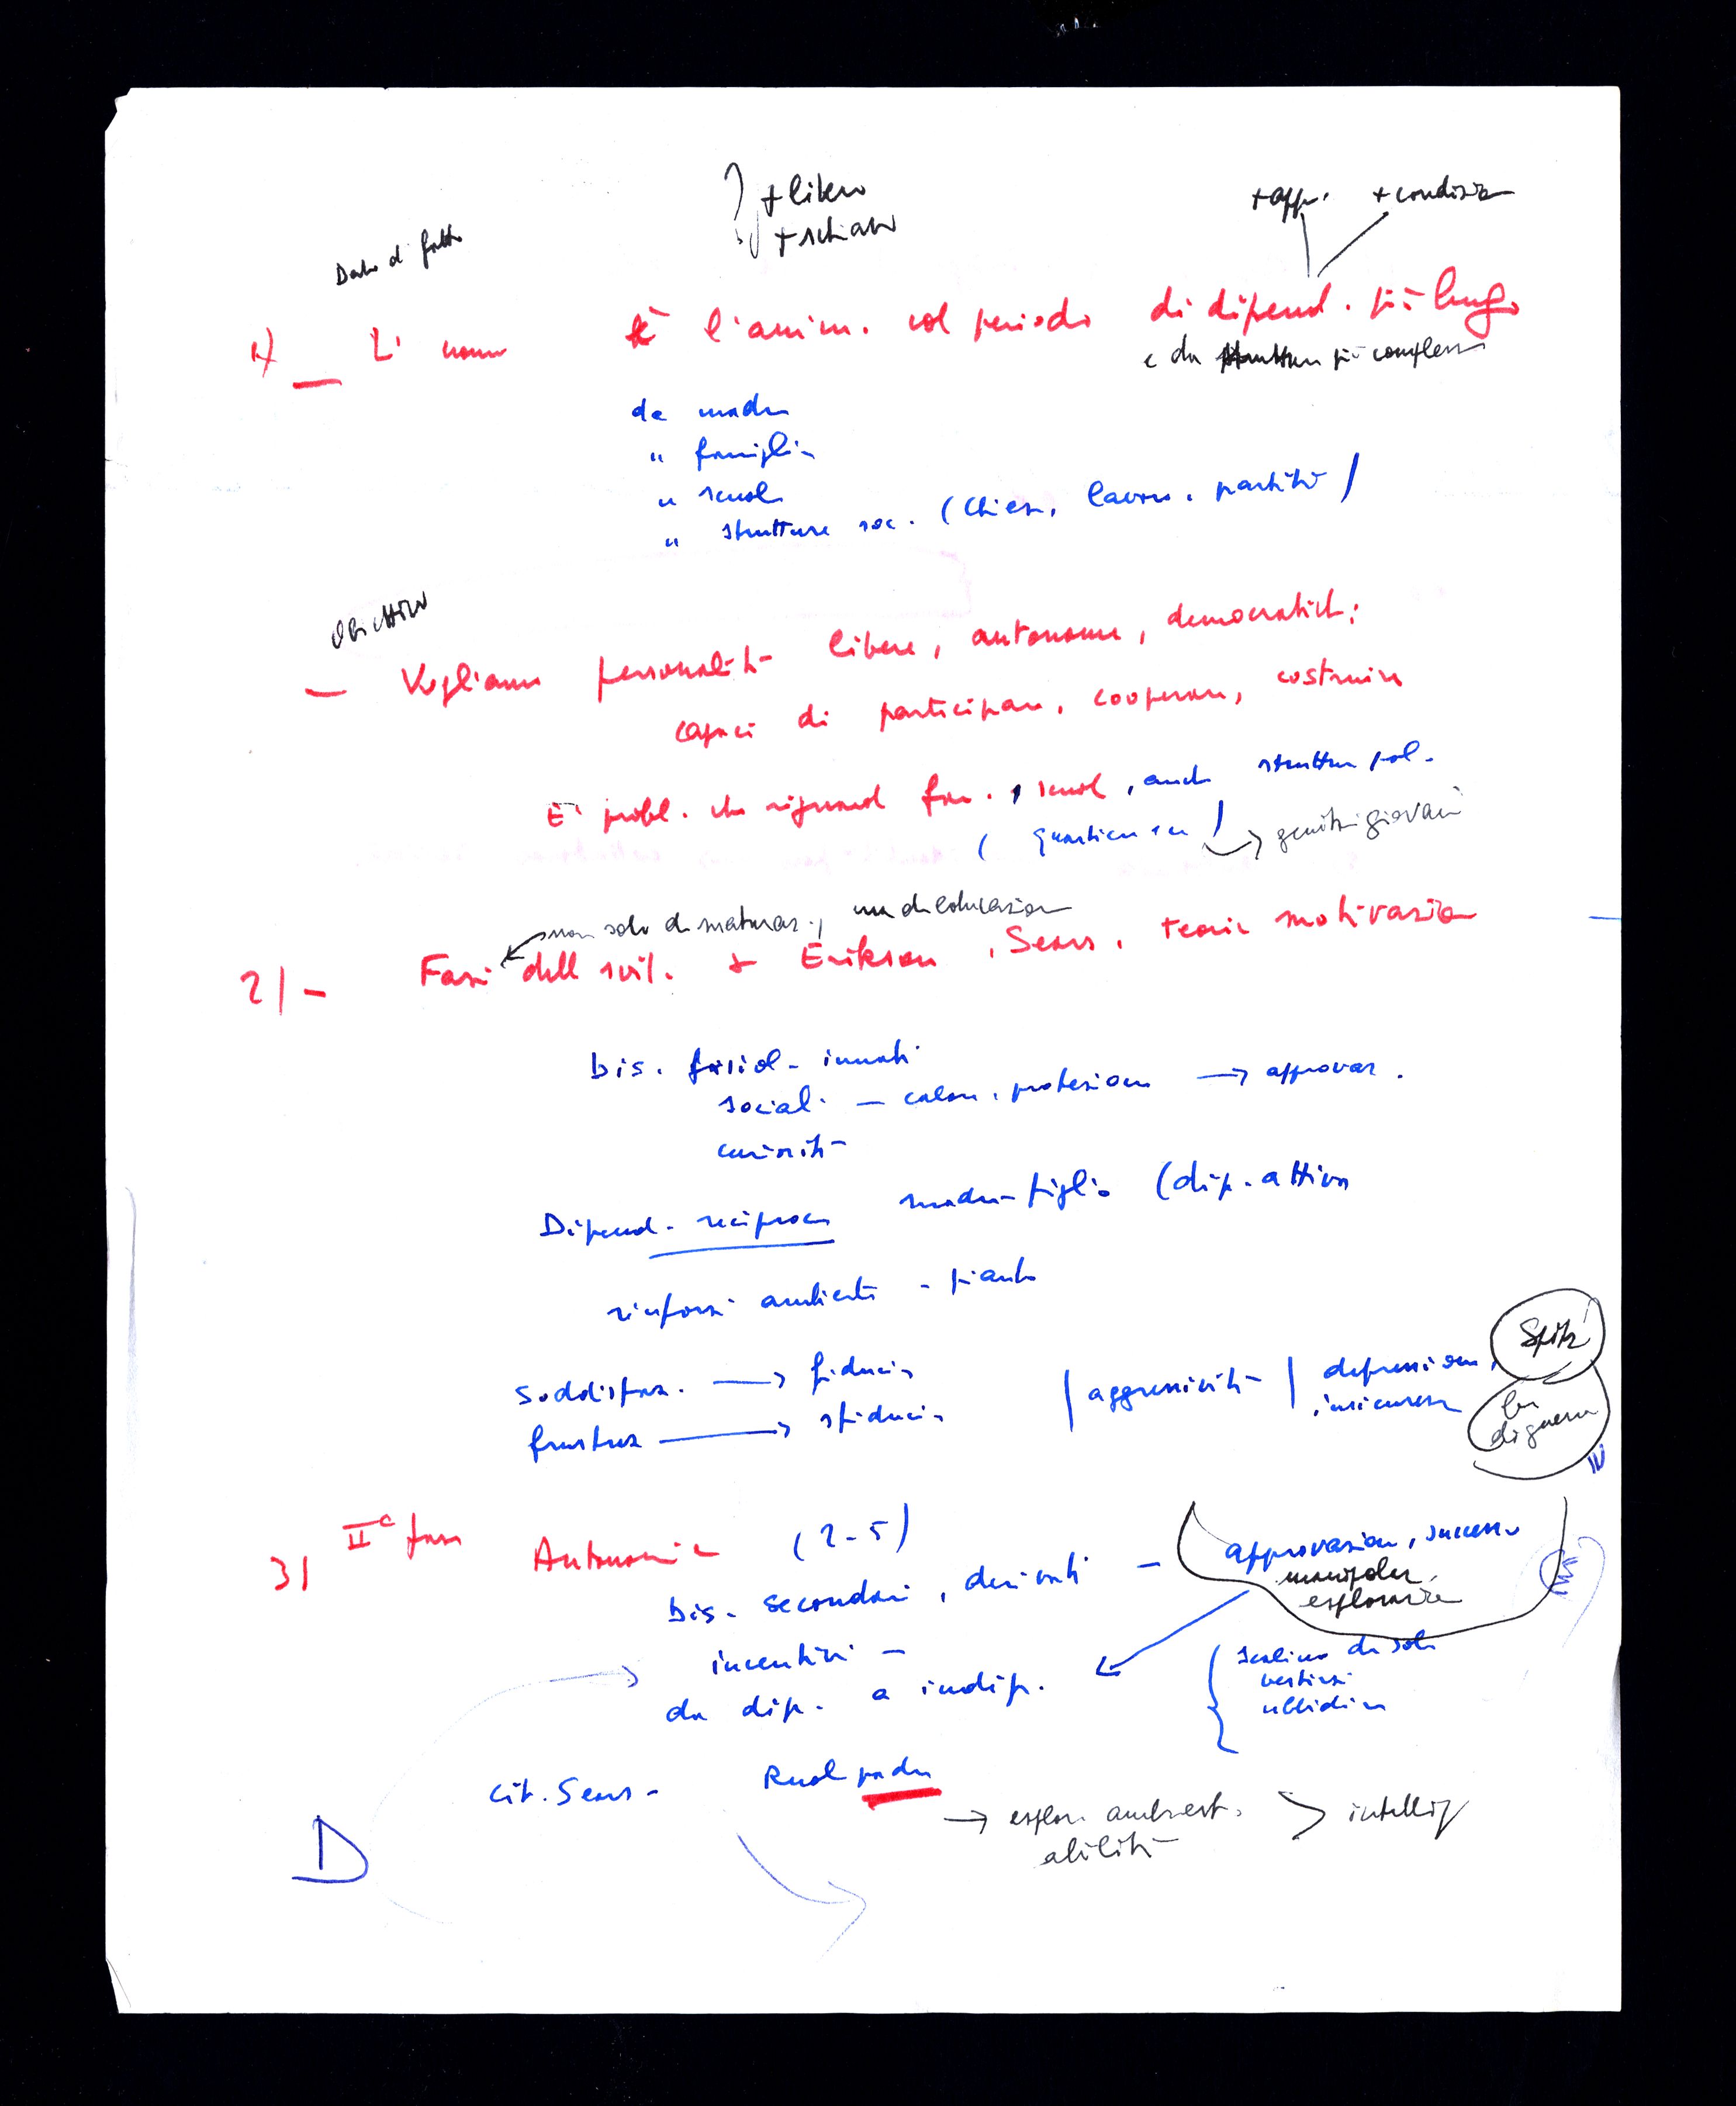 + libero
+ schiavo
+ app. + condiziz
Dato di fatto
1) — L'uomo è l'anim. col periodo di dipend. più lungo
e da strutture più complesse
da madre
" famiglia
" scuola
" strutture soc. (Chiesa, lavoro, partiti)
Obiettivo
— Vogliamo personalità libere, autonome, democratich;
capaci di participare, cooperare, costruire
E' probl. che riguard fam., scuol, anche struttur pol.
( quartiere ) → genitori giovani
non solo di maturaz., ma di educazion
2) - Fasi dell svil. + Erikson, Sears, teoric motivazion
bis. fisiol - innati
social - calore, protezione → approvaz.
curiosità
Dipend. reciproca madre-figlio (dip. attiva
rinforzi ambienti - pianto
soddisfaz. → fiducia
frustraz → sfiducia | aggressività | depressione,
insicurezza
Spitz
di guerra
3) IIa fase Autonomia (2-5)
bis. secondari, derivati — approvazione, successo
manipolaz,
esplorazio
incentivi —
da dip. a indip.
vestirsi
ubbidire
cit. Sears - Ruolo padre
→ esplor. ambient. > intellig
abilità
D